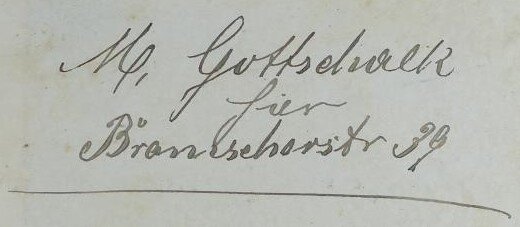 M, Gottschalk
hier
Bramschorstr 39